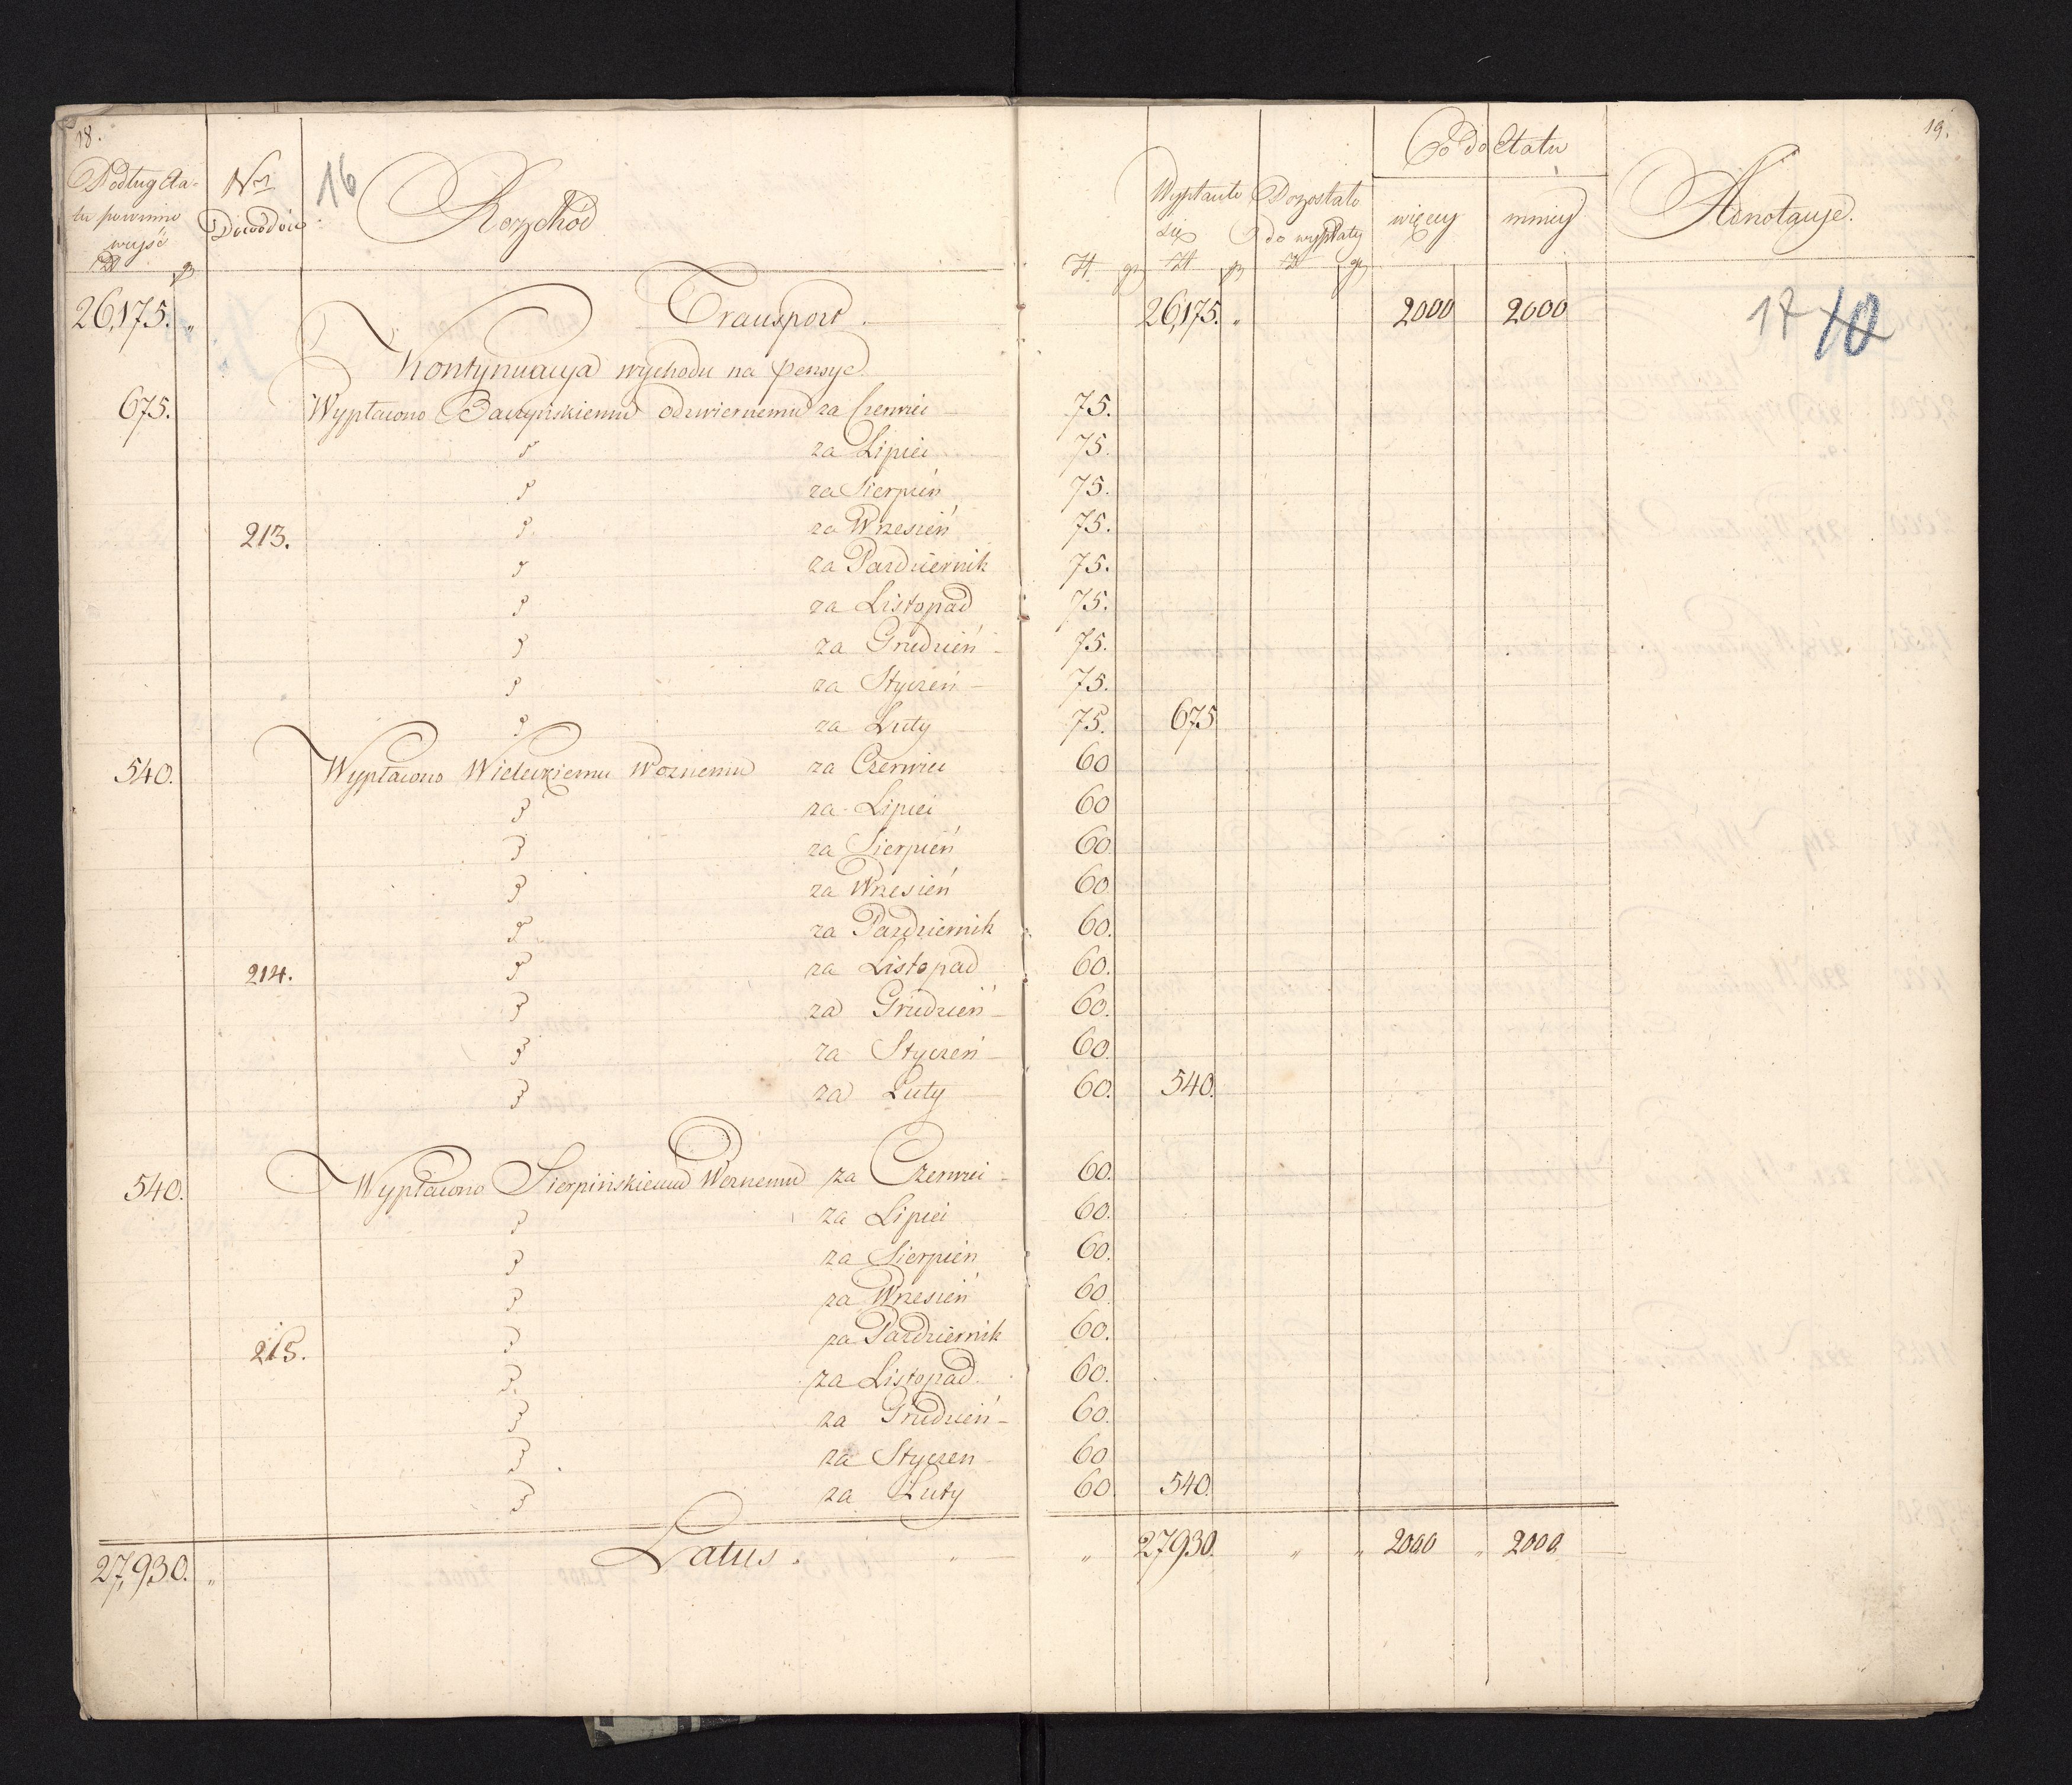 18. 19.
Podług Eta- N<sup>r</sup> 16 Rozchód Wypłaciło Pozostało Co do Etatu Adnotacye.
tu powinno Dowodów się do wypłaty więcey mniey
wyjść
Zł gr Zł gr Zł gr Zł gr
26,175. „ Transport. 26,175. „ 2000 2000 17 10
Kontynuacya wychodu na pensye.
675. Wypłacono Baczyńskiemu odzwiernemu za Czerwiec 75.
za Lipiec 75.
za Sierpień 75.
213. za Wrzesień 75.
za Pazdziernik 75.
za Listopad 75.
za Grudzień 75.
za Styczeń 75.
za Luty 75. 675
540. Wypłacono Wieleckiemu Woznemu za Czerwiec 60
za Lipiec 60
za Sierpień 60.
za Wrzesień 60
za Pazdziernik 60.
214. za Listopad 60.
za Grudzień 60.
za Styczeń 60.
za Luty 60. 540.
540. Wypłacono Sierpińskiemu Woznemu za Czerwiec 60.
za Lipiec 60.
za Sierpień 60.
za Wrzesień 60.
215. za Pazdziernik 60.
za Listopad 60.
za Grudzień 60.
za Styczen 60
za Luty 60. 540.
27,930. „ Latus. „ „ 27930. „ „ 2000 „ 2000.